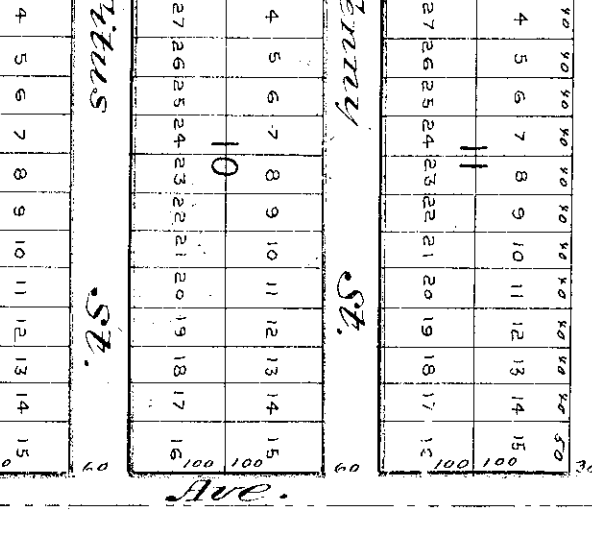 4 5 6 7 8 9 10 11 12 13 14 15
St.
60
27 26 25 24 23 22 21 20 19 18 17 16
10
4 5 6 7 8 9 10 11 12 13 14 15
100 100
St.
60
27 26 25 24 23 22 21 20 19 18 17
11
4 5 6 7 8 9 10 11 12 13 14 15
100 100
40 40 40 40 40 40 40 40 40 40 40 50
Ave.